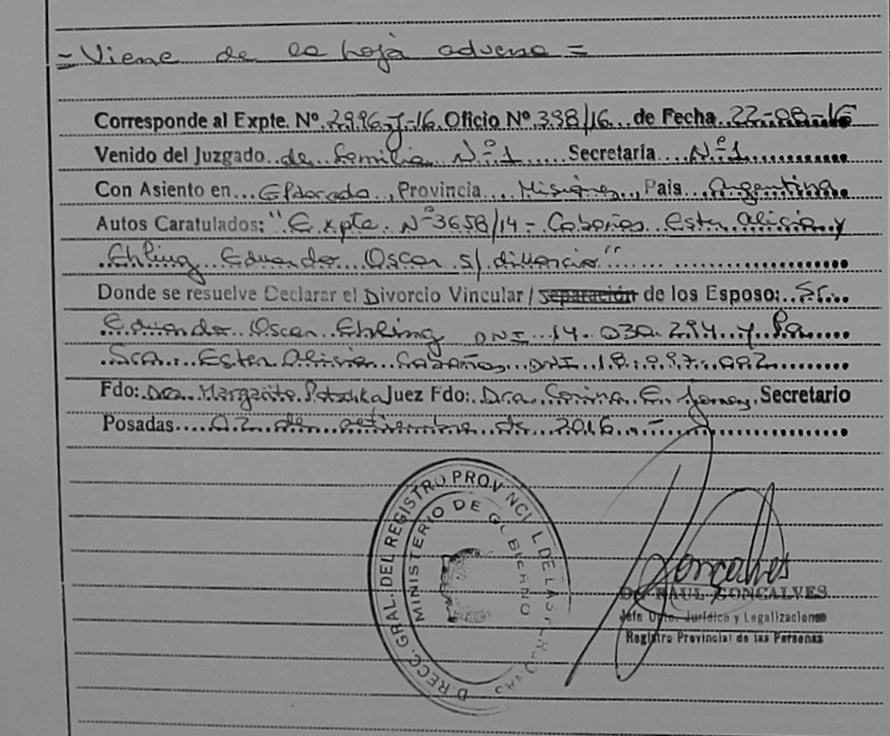 = Viene de la hoja adversa =
Corresponde al Expte. Nº 2996-J-16. Oficio Nº 398/16 de Fecha 22-08-16
Venido del Juzgado de Familia Nº 1 Secretaría Nº 1
Con Asiento en Eldorado, Provincia Misiones, Pais Argentina
Autos Caratulados: "Expte. Nº 3658/14 - Cabañas Ester Alicia y
Ehling Eduardo Oscar s/ divorcio"
Donde se resuelve Declarar el Divorcio Vincular / separación de los Esposo: Sr.
Eduardo Oscar Ehling DNI 14.030.294 y la
Sra. Ester Alicia Cabañas, DNI 18.897.002
Fdo: Dra. Margarita Potschka Juez Fdo: Dra. Corina E. Jones, Secretario
Posadas 02 de setiembre de 2016.-
DIRECC. GRAL. DEL REGISTRO PROVINCIAL DE LAS PERSONAS
MINISTERIO DE GOBIERNO
Goncalves
Dr RAUL GONCALVES
Jefe Dpto. Jurídico y Legalizaciones
Registro Provincial de las Personas